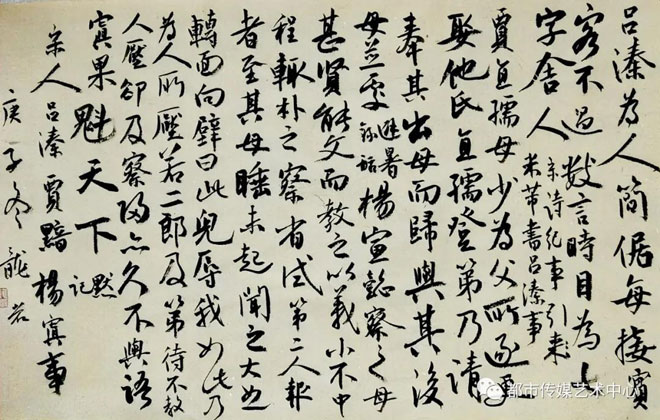 吕溱為人简倨每接賓
客不過數言時目為七
字舍人
宋诗纪事引
米芾書吕溱事
賈直孺母少為父所逐更
娶他氏直孺登第乃請
奉其出母而歸與其後
母並處
避暑
錄話
楊宣懿察之母
甚賢能文而教之以義小不中
程輒朴之察省试第二人報
者至其母睡未起聞之大怒
轉面向壁曰此兒辱我如此乃
為人所壓若二郎及第待不教
人壓卻及察歸亦久不與語
寘果魁天下
默記
宋人吕溱賈黯楊寘事
庚子冬龍若
都市传媒艺术中心